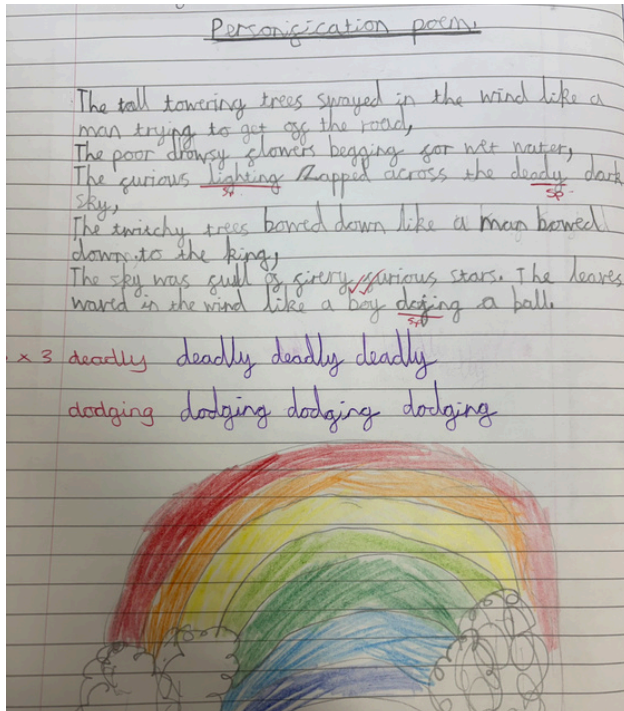 Personification poem.
The tall towering trees swayed in the wind like a
man trying to get off the road,
The poor drowsy flowers begging for wet water,
The furious lighting zapped across the deady dark
sp sp
sky,
The twitchy trees bowed down like a man bowed
down to the king,
The sky was full of firery furious stars. The leaves
waved in the wind like a boy doging a ball.
sp
x 3 deadly deadly deadly deadly
dodging dodging dodging dodging